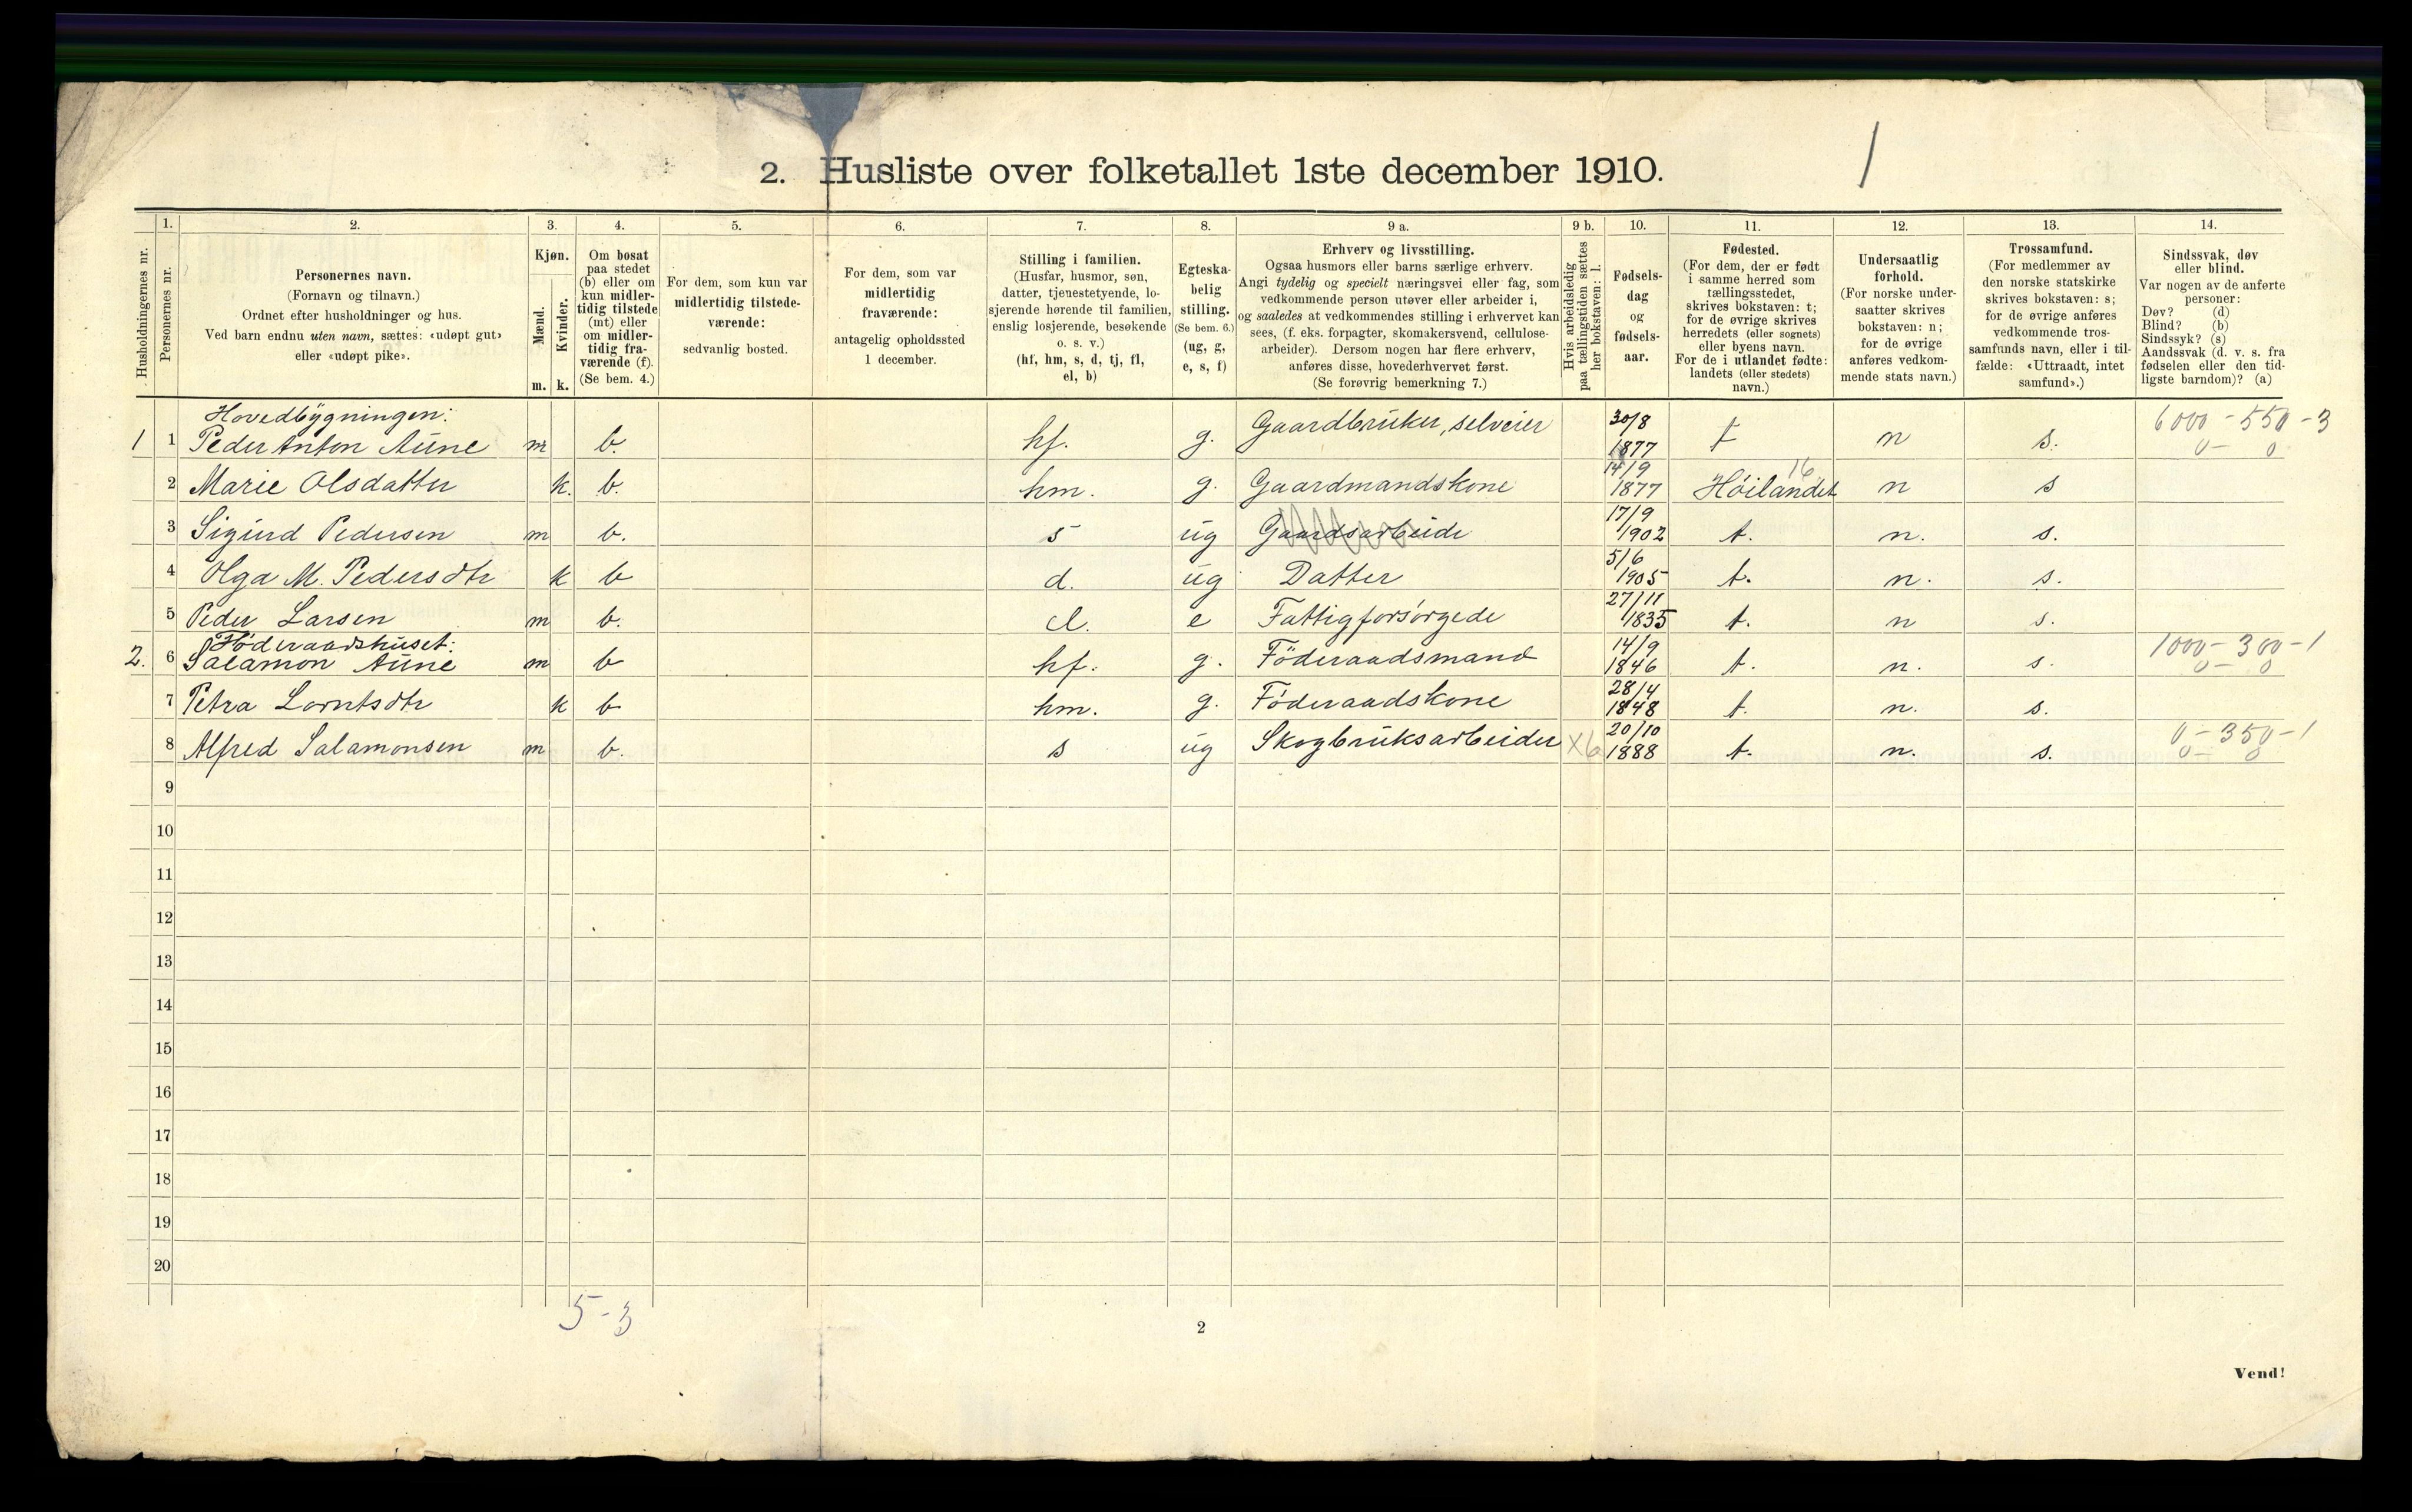 1
2. Husliste over folketallet 1ste december 1910.
1. 2. 3. 4. 5. 6. 7. 8. 9 a. 9 b. 10. 11. 12. 13. 14.
Husholdningernes nr.
Personernes nr.
Personernes navn.
(Fornavn og tilnavn.)
Ordnet efter husholdninger og hus.
Ved barn endnu uten navn, sættes: «udøpt gut»
eller «udøpt pike».
Kjøn.
Mænd.
Kvinder.
m. k.
Om bosat
paa stedet
(b) eller om
kun midler-
tidig tilstede
(mt) eller
om midler-
tidig fra-
værende (f).
(Se bem. 4.)
For dem, som kun var
midlertidig tilstede-
værende:
sedvanlig bosted.
For dem, som var
midlertidig
fraværende:
antagelig opholdssted
1 december.
Stilling i familien.
(Husfar, husmor, søn,
datter, tjenestetyende, lo-
sjerende hørende til familien,
enslig losjerende, besøkende
o. s. v.)
(hf, hm, s, d, tj, fl,
el, b)
Egteska-
belig
stilling.
(Se bem. 6.)
(ug, g,
e, s, f)
Erhverv og livsstilling.
Ogsaa husmors eller barns særlige erhverv.
Angi tydelig og specielt næringsvei eller fag, som
vedkommende person utøver eller arbeider i,
og saaledes at vedkommendes stilling i erhvervet kan
sees, (f. eks. forpagter, skomakersvend, cellulose-
arbeider). Dersom nogen har flere erhverv,
anføres disse, hovederhvervet først.
(Se forøvrig bemerkning 7.)
Hvis arbeidsledig
paa tællingstiden sættes
her bokstaven: l.
Fødsels-
dag
og
fødsels-
aar.
Fødested.
(For dem, der er født
i samme herred som
tællingsstedet,
skrives bokstaven: t;
for de øvrige skrives
herredets (eller sognets)
eller byens navn.
For de i utlandet fødte:
landets (eller stedets)
navn.)
Undersaatlig
forhold.
(For norske under-
saatter skrives
bokstaven: n;
for de øvrige
anføres vedkom-
mende stats navn.)
Trossamfund.
(For medlemmer av
den norske statskirke
skrives bokstaven: s;
for de øvrige anføres
vedkommende tros-
samfunds navn, eller i til-
fælde: «Uttraadt, intet
samfund».)
Sindssvak, døv
eller blind.
Var nogen av de anførte
personer:
Døv? (d)
Blind? (b)
Sindssyk? (s)
Aandssvak (d. v. s. fra
fødselen eller den tid-
ligste barndom)? (a)
Hovedbygningen:
1 1 Peder Anton Aune m b. hf. g. Gaardbruker, selveier 30/8 1877 t n s. 6000 - 550 - 3
0 - 0
2 Marie Olsdatter k. b. hm. g. Gaardmandskone 14/9 1877 Höilandet 16 n s
3 Sigurd Pedersen m b. s ug Gaardsarbeide 17/9 1902 t. n. s.
4 Olga M. Pedersdtr k b d. ug Datter 5/6 1905 t. n. s.
5 Peder Larsen m b. el. e Fattigforsörgede 27/11 1835 t. n s.
Föderaadshuset:
2. 6 Salamon Aune m b hf. g. Föderaadsmand 14/9 1846 t. n. s. 1000 - 300 - 1
0 - 0
7 Petra Lorntsdtr k b hm. g. Föderaadskone 28/4 1848 t. n. s.
8 Alfred Salamonsen m b. s ug Skogbruksarbeider X6 20/10 1888 t. n. s. 0 - 350 - 1
0 - 0
9
10
11
12
13
14
15
16
17
18
19
20
5 - 3
2
Vend!